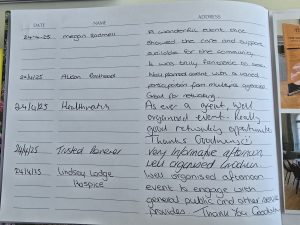 DATE NAME ADDRESS
24-4-25 Megan A wonderful event once
showed the care and support
available for the community.
It was truly fantastic to see
24/4/25 Alison Well planned event with a varied
participation from multiple agencies
Good for networking
24/4/25 Healthwatch As ever a great, well
organised event - Really
good networking opportunity
Thanks
24/4/25 Trusted Very informative afternoon
well organised
24/4/25 Lindsey Lodge Well organised afternoon
Hospice event to engage with
general public and other service
providers - Thank You